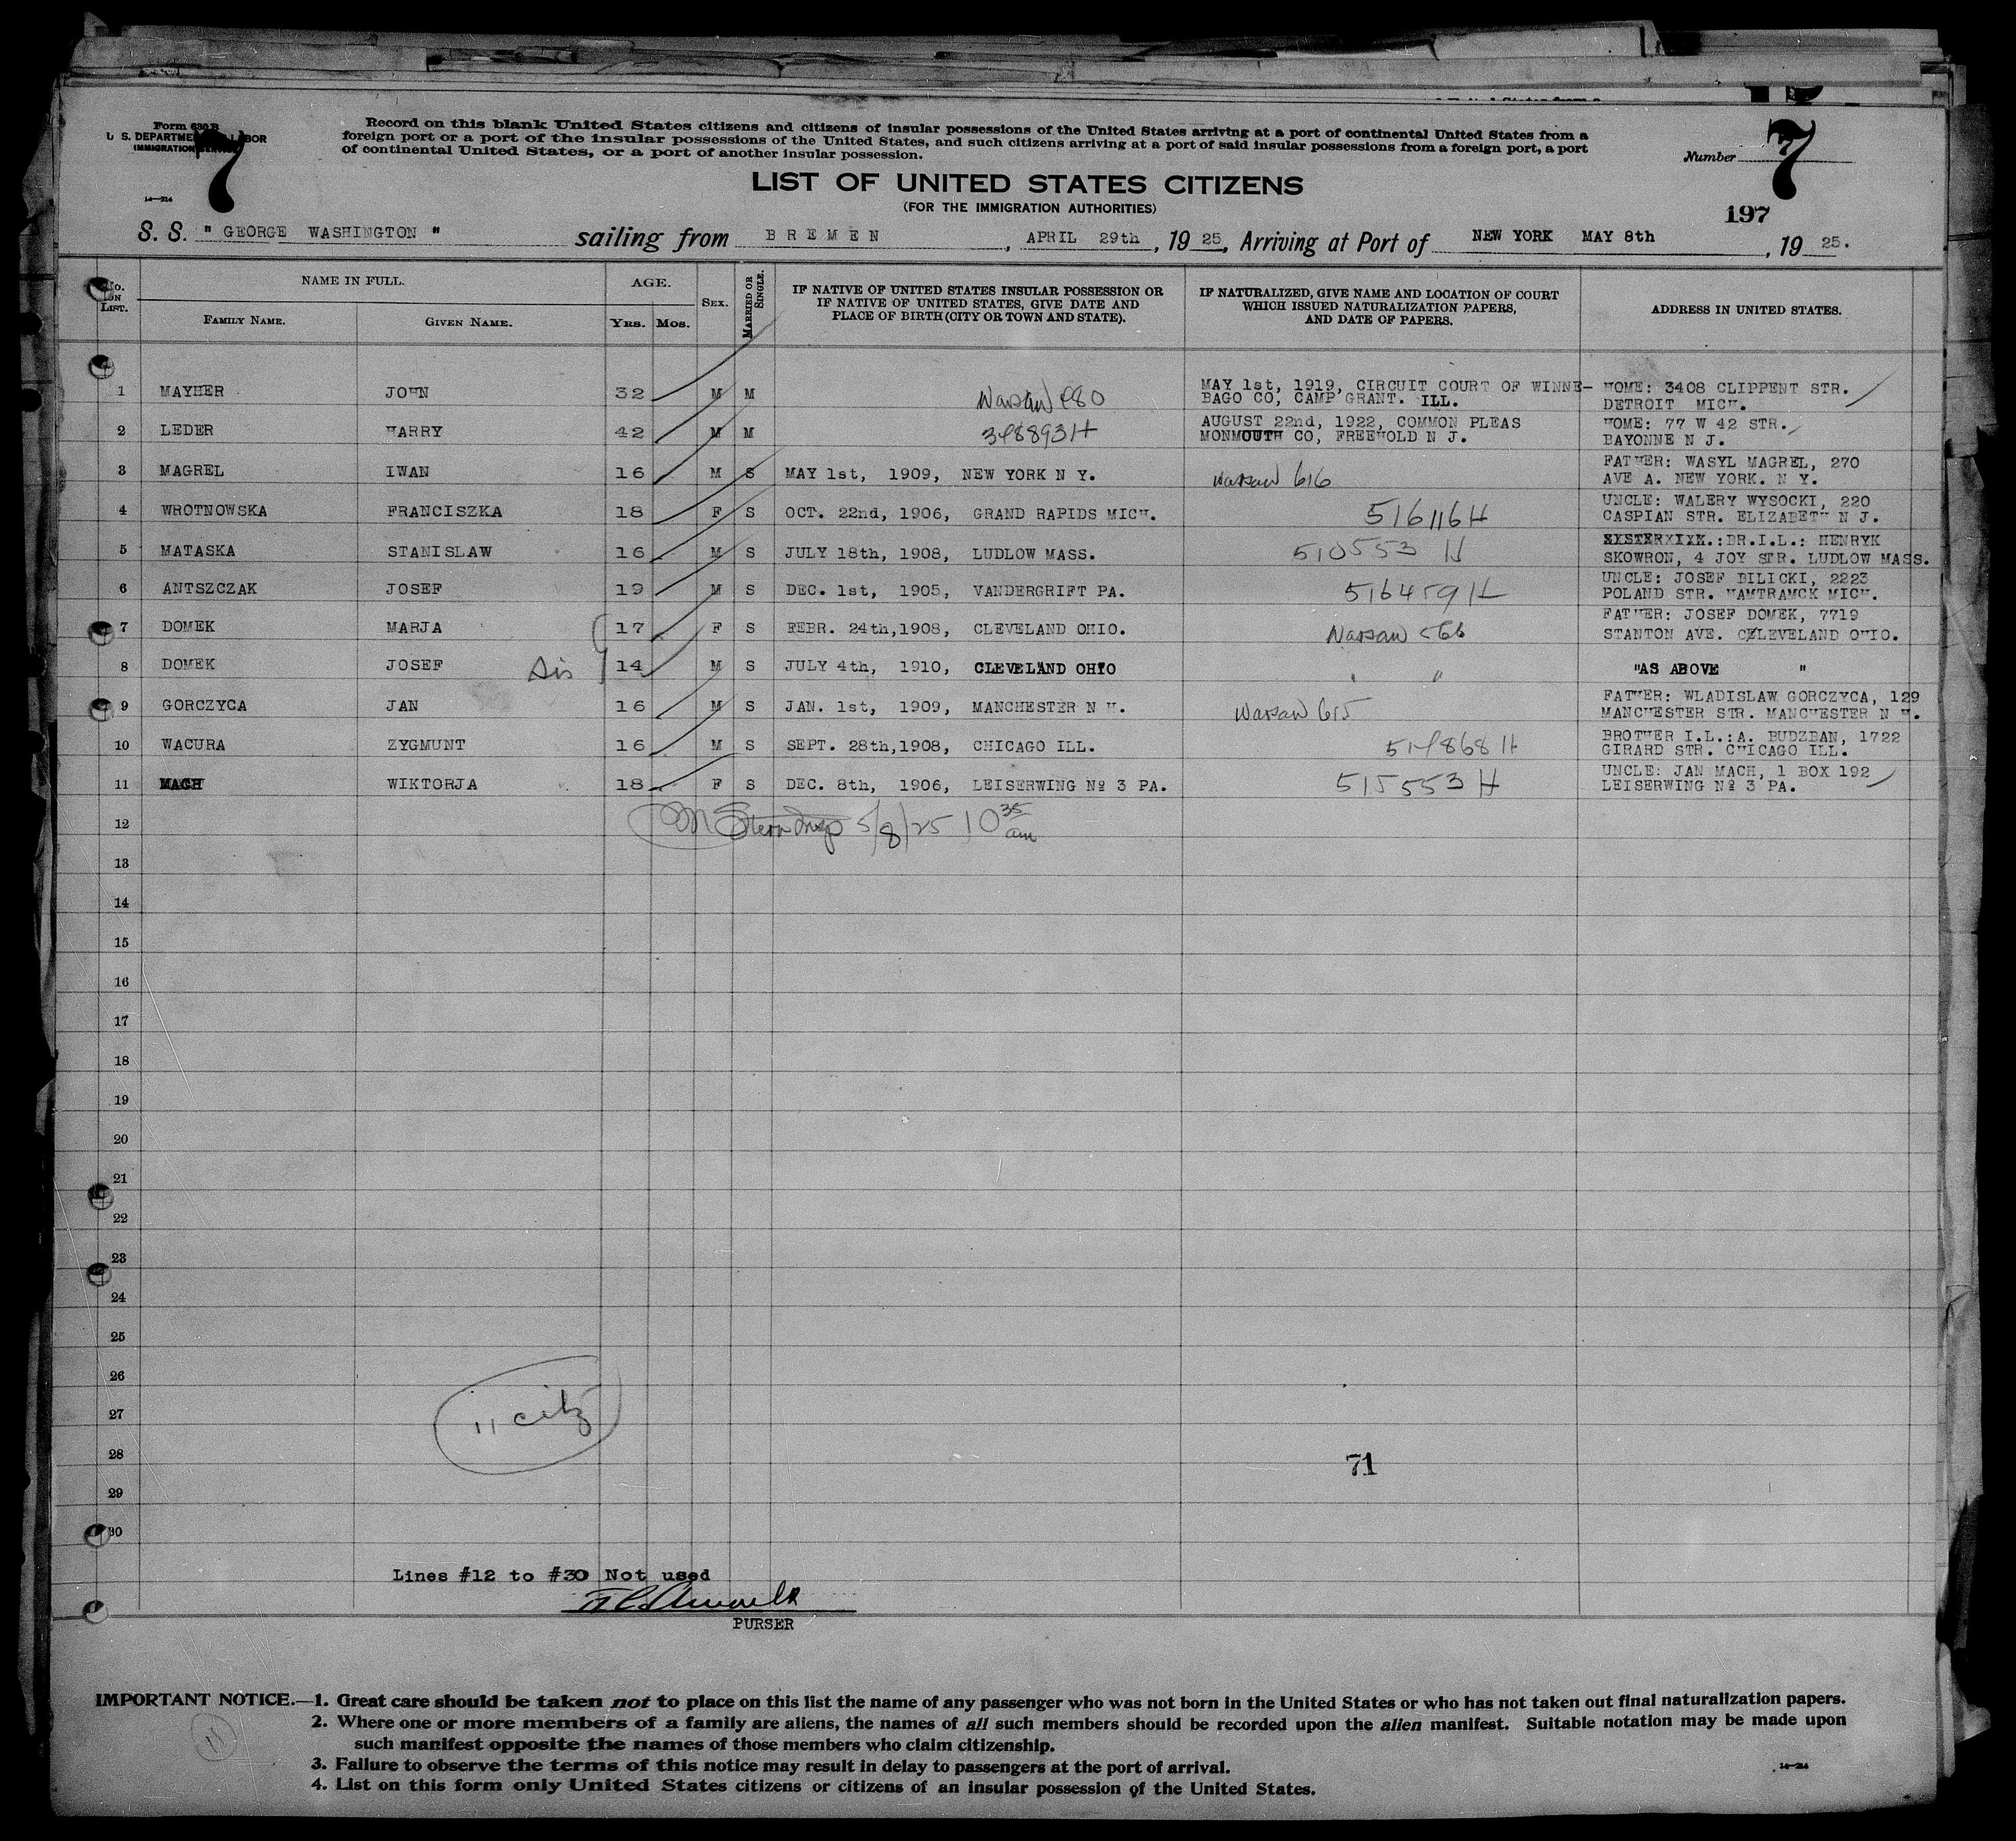 Form 630 B
U. S. DEPARTMENT OF LABOR
IMMIGRATION SERVICE
7
14—214
Record on this blank United States citizens and citizens of insular possessions of the United States arriving at a port of continental United States from a
foreign port or a port of the insular possessions of the United States, and such citizens arriving at a port of said insular possessions from a foreign port, a port
of continental United States, or a port of another insular possession.
Number 7
7
LIST OF UNITED STATES CITIZENS
(FOR THE IMMIGRATION AUTHORITIES)
197
S. S. " GEORGE WASHINGTON " sailing from BREMEN, APRIL 29th, 1925, Arriving at Port of NEW YORK MAY 8th, 1925.
No. on List. NAME IN FULL. Family Name. Given Name. AGE. Yrs. Mos. Sex. Married or Single. IF NATIVE OF UNITED STATES INSULAR POSSESSION OR IF NATIVE OF UNITED STATES, GIVE DATE AND PLACE OF BIRTH (CITY OR TOWN AND STATE). IF NATURALIZED, GIVE NAME AND LOCATION OF COURT WHICH ISSUED NATURALIZATION PAPERS, AND DATE OF PAPERS. ADDRESS IN UNITED STATES.
1 MAYHER JOHN 32 M M Warsaw MAY 1st, 1919, CIRCUIT COURT OF WINNE- HOME: 3408 CLIPPENT STR.
BAGO CO, CAMP GRANT. ILL. DETROIT MICH.
2 LEDER HARRY 42 M M AUGUST 22nd, 1922, COMMON PLEAS HOME: 77 W 42 STR.
MONMOUTH CO, FREEHOLD N J. BAYONNE N J.
3 MAGREL IWAN 16 M S MAY 1st, 1909, NEW YORK N Y. Warsaw 616 FATHER: WASYL MAGREL, 270
AVE A. NEW YORK. N Y.
4 WROTNOWSKA FRANCISZKA 18 F S OCT. 22nd, 1906, GRAND RAPIDS MICH. 516116H UNCLE: WALERY WYSOCKI, 220
CASPIAN STR. ELIZABETH N J.
5 MATASKA STANISLAW 16 M S JULY 18th, 1908, LUDLOW MASS. 510553 H BR.I.L.: HENRYK
SKOWRON, 4 JOY STR. LUDLOW MASS.
6 ANTSZCZAK JOSEF 19 M S DEC. 1st, 1905, VANDERGRIFT PA. 516459H UNCLE: JOSEF BILICKI, 2223
POLAND STR. HAMTRAMCK MICH.
7 DOMEK MARJA 17 F S FEBR. 24th,1908, CLEVELAND OHIO. Warsaw 566 FATHER: JOSEF DOMEK, 7719
STANTON AVE. CLEVELAND OHIO.
8 DOMEK JOSEF Sis 14 M S JULY 4th, 1910, CLEVELAND OHIO " " "AS ABOVE "
9 GORCZYCA JAN 16 M S JAN. 1st, 1909, MANCHESTER N H. Warsaw 615 FATHER: WLADISLAW GORCZYCA, 129
MANCHESTER STR. MANCHESTER N H.
10 WACURA ZYGMUNT 16 M S SEPT. 28th,1908, CHICAGO ILL. BROTHER I.L.:A. BUDZBAN, 1722
GIRARD STR. CHICAGO ILL.
11 MACH WIKTORJA 18 F S DEC. 8th, 1906, LEISERWING Nº 3 PA. 515553 H UNCLE: JAN MACH, 1 BOX 192
LEISERWING Nº 3 PA.
12 Stern Insp 5/8/25 10 35 am
13
14
15
16
17
18
19
20
21
22
23
24
25
26
27 11 citz
28 71
29
30
Lines #12 to #30 Not used
PURSER
IMPORTANT NOTICE.—1. Great care should be taken not to place on this list the name of any passenger who was not born in the United States or who has not taken out final naturalization papers.
2. Where one or more members of a family are aliens, the names of all such members should be recorded upon the alien manifest. Suitable notation may be made upon
such manifest opposite the names of those members who claim citizenship.
3. Failure to observe the terms of this notice may result in delay to passengers at the port of arrival.
4. List on this form only United States citizens or citizens of an insular possession of the United States.
11
14—214